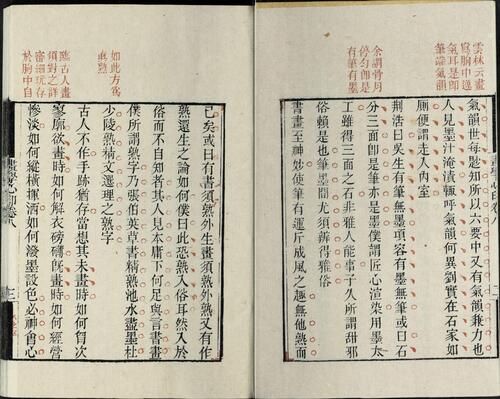 雲林云畫
寫胸中逸
氣耳是即
筆端氣韻
余謂骨月
停勻即是
有筆有墨
氣韻世每尟知所以六要中又有氣韻兼力也
人見墨汁淹漬輒呼氣韻何異劉實在石家如
廁便謂走入內室
荆浩曰吳生有筆無墨項容有墨無筆或曰石
分三面即是筆亦是墨僕謂匠心渲染用墨太
工雖得三面之石非雅人能事子久所謂甜邪
俗賴是也筆墨間尤須辨得雅俗
書畫至神妙使筆有運斤成風之趣無他熟而
如此方爲
眞熟
臨古人畫
須對之詳
審細玩存
於胸中自
己矣或曰有書須熟外生畫須熟外熟又有作
熟還生之論如何僕曰此恐熟入俗耳然入於
俗而不自知者其人見本庸下何足與言書畫
僕所謂熟字乃張伯英草書精熟池水盡墨杜
少陵熟精文選理之熟字
古人不作手跡猶存當想其未畫時如何胷次
寥廓欲畫時如何解衣磅礴旣畫時如何經營
慘淡如何縱橫揮洒如何潑墨設色必神會心